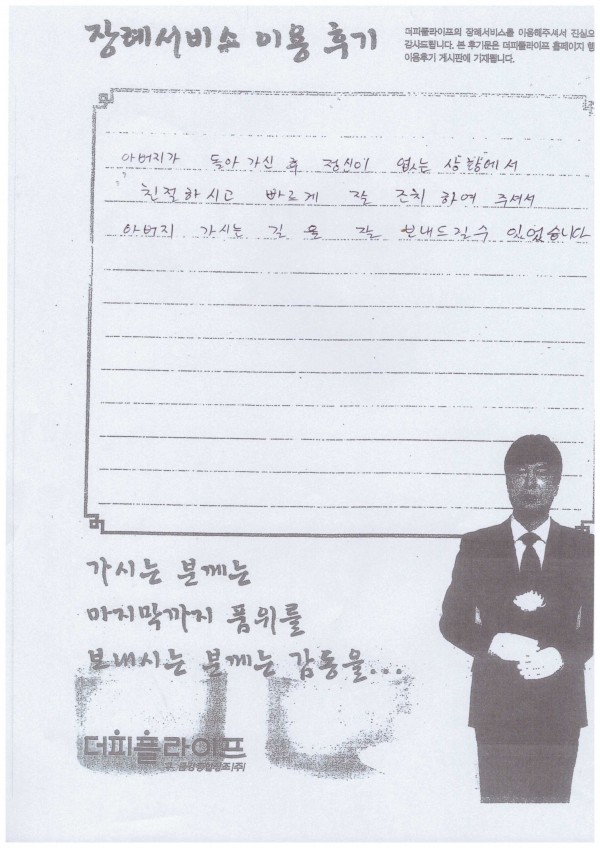 장례서비스 이용 후기
더피플라이프의 장례서비스를 이용해주셔서 진심으
감사드립니다. 본 후기문은 더피플라이프 홈페이지 행
이용후기 게시판에 기재됩니다.
아버지가 돌아가신 후 정신이 없는 상황에서
친절하시고 빠르게 잘 조치 하여 주셔서
아버지 가시는 길을 잘 보내드릴수 있었습니다
가시는 분께는
마지막까지 품위를
보내시는 분께는 감동을...
더피플라이프